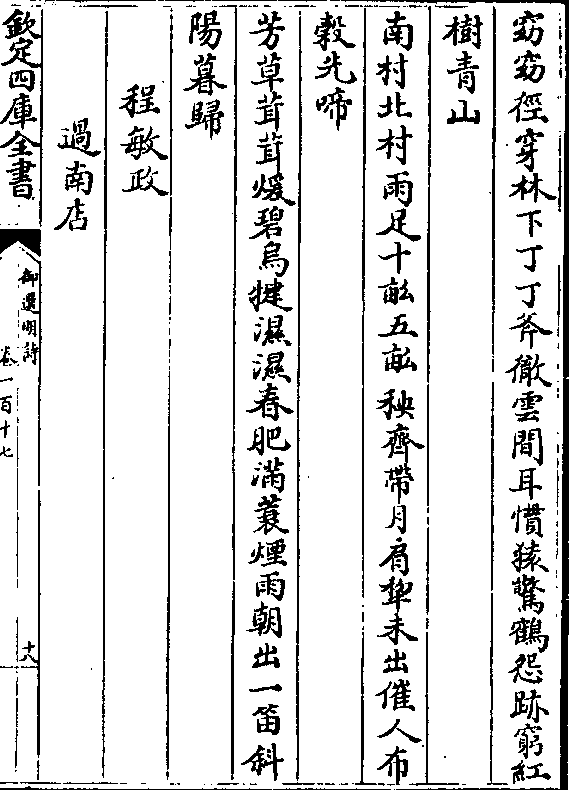 窈窈徑穿林下丁丁斧徹雲間耳慣猿驚鶴怨跡窮紅
樹青山
南村北村雨足十畝五畝秧齊帶月肩犂未出催人布
榖先啼
芳草茸茸煖碧烏犍濕濕春肥滿蓑煙雨朝出一笛斜
陽暮歸
程敏政
過南店
欽定四庫全書
御選明詩
卷一百十七
十八